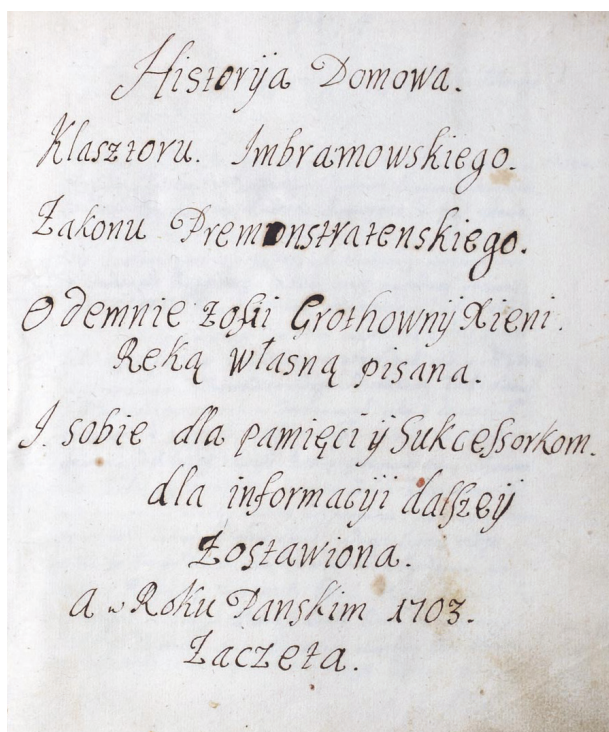 Historyja Domowa.
Klasztoru. Imbramowskiego.
Zakonu Premonstratenskiego.
Odemnie Zofii Grothowny Xieni.
Reką własną pisana.
I sobie dla pamięci ÿ Sukcessorkom.
dla informacÿi dalszeÿ
Zostawiona.
a w Roku Panskim 1703.
Zaczeta.